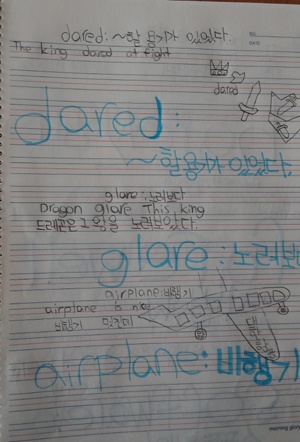 dared: ~할 용기가 있었다.
The king dared at fight
dared
dared:
~할용기가 있었다.
glare: 노려보다
Dragon glare This king
드래곤은 그 왕을 노려보았다.
glare: 노려보다
airplane: 비행기
airplane is nice
비행기 멋진데
airplane: 비행기
morning glory